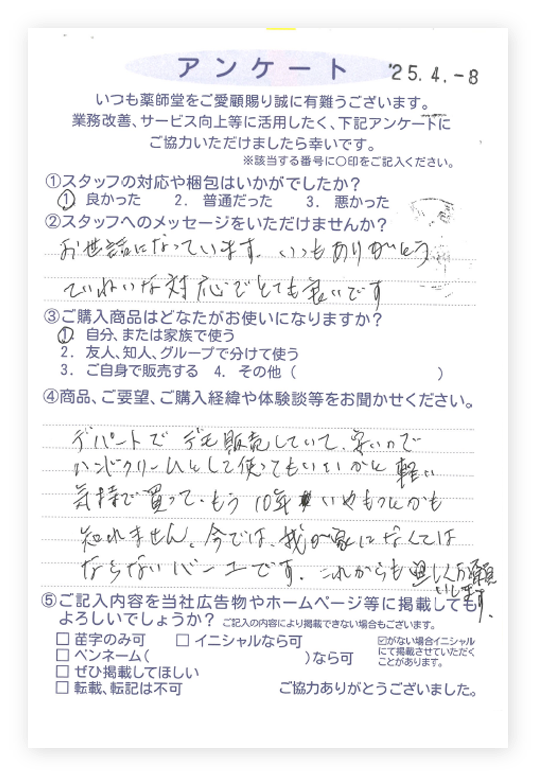 アンケート
'25.4.-8
いつも薬師堂をご愛顧賜り誠に有難うございます。
業務改善、サービス向上等に活用したく、下記アンケートに
ご協力いただけましたら幸いです。
※該当する番号に〇印をご記入ください。
①スタッフの対応や梱包はいかがでしたか？
1. 良かった 2. 普通だった 3. 悪かった
②スタッフへのメッセージをいただけませんか？
お世話になっています。いつもありがとう
ていねいな対応でとても良いです
③ご購入商品はどなたがお使いになりますか？
1. 自分、または家族で使う
2. 友人、知人、グループで分けて使う
3. ご自身で販売する 4. その他（ ）
④商品、ご要望、ご購入経緯や体験談等をお聞かせください。
デパートで デモ販売していて、安いので
ハンドクリームとして使ってもいいかと 軽い
気持で買って、もう 10年 いやもっとかも
知れません。今では、我が家になくては
ならないバーユです。これからも宜しくお願
いします。
⑤ご記入内容を当社広告物やホームページ等に掲載しても
よろしいでしょうか？ ご記入の内容により掲載できない場合もございます。
□ 苗字のみ可 □ イニシャルなら可
□ ペンネーム（ ）なら可
□ ぜひ掲載してほしい
□ 転載、転記は不可
☑がない場合イニシャル
にて掲載させていただく
ことがあります。
ご協力ありがとうございました。